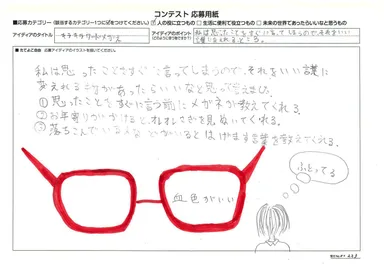 コンテスト 応募用紙
■応募カテゴリー（該当するカテゴリー1つに☑をつけてください。）
人の役に立つもの
生活に便利で役立つもの
未来の世界であったらいいなと思うもの
アイディアのタイトル
キラキラワードメガネ
アイディアのポイント
私は思ったことをすぐ言ってしまうので、それをいい
私は思ったことをすぐに言ってしまうので、それをいい言葉に
変えれるメガネがあったらいいなと思って考えました。
①思ったことをすぐに言う前にメガネが教えてくれる。
②お年寄りがいかけると、オレオレさぎを見ぬいてくれる。
③落ちこんでいる人などがいるとはげます言葉を教えてくれる。
血色がいい
ふとってる